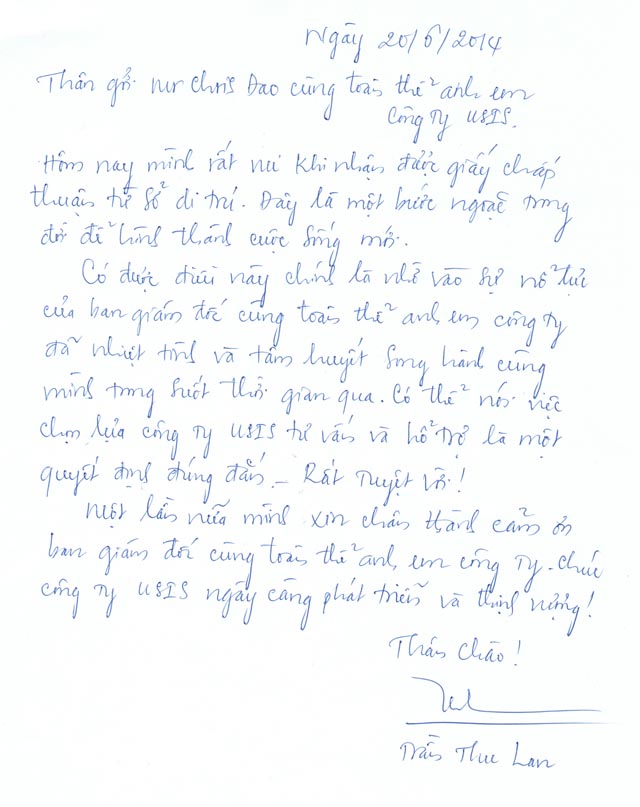 Ngày 20/6/2014
Thân gởi Mr Chris Dao cùng toàn thể anh em
Công Ty USIS.
Hôm nay mình rất vui khi nhận được giấy chấp
thuận từ Sở di trú. Đây là một bước ngoặc trong
đời để hình thành cuộc sống mới.
Có được điều này chính là nhờ vào sự nổ lực
của ban giám đốc cùng toàn thể anh em công ty
đã nhiệt tình và tâm huyết song hành cùng
mình trong suốt thời gian qua. Có thể nói việc
chọn lựa công ty USIS tư vấn và hổ trợ là một
quyết định đúng đắn – Rất tuyệt vời!
Một lần nữa mình xin chân thành cảm ơn
ban giám đốc cùng toàn thể anh em công ty. Chúc
công ty USIS ngày càng phát triển và thịnh vượng!
Thân Chào!
Trần Thu Lan